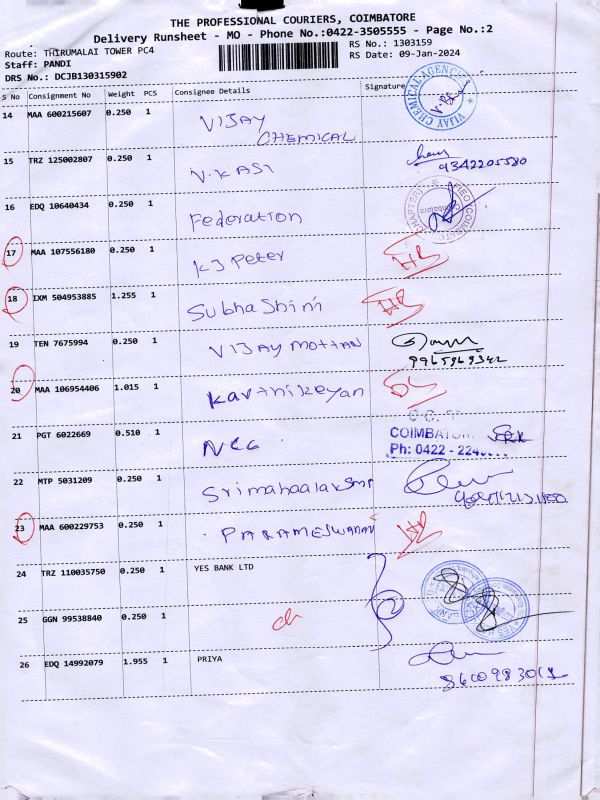 THE PROFESSIONAL COURIERS, COIMBATORE
Delivery Runsheet - MO - Phone No.:0422-3505555 - Page No.:2
Route: THIRUMALAI TOWER PC4
RS No.: 1303159
Staff: PANDI
RS Date: 09-Jan-2024
DRS No.: DCJB130315902
S No Consignment No Weight PCS Consignee Details Signature
14 MAA 600215607 0.250 1 VIJAY
CHEMICAL
VIJAY CHEMICAL AGENCIES
15 TRZ 125002807 0.250 1 V.KASI
9342205580
16 EDQ 10640434 0.250 1 Federation
17 MAA 107556180 0.250 1 KJ Peter
18 IXM 504953885 1.255 1 Subhashini
19 TEN 7675994 0.250 1 VIJAY MOTTAN
9965969342
20 MAA 106954406 1.015 1 Karthikeyan
DL
21 PGT 6022669 0.510 1
COIMBATORE
Ph: 0422 - 224
22 MTP 5031209 0.250 1 Srimahaalaxmi
23 MAA 600229753 0.250 1 PARAMESWARAN
24 TRZ 110035750 0.250 1 YES BANK LTD
25 GGN 99538840 0.250 1
26 EDQ 14992079 1.955 1 PRIYA